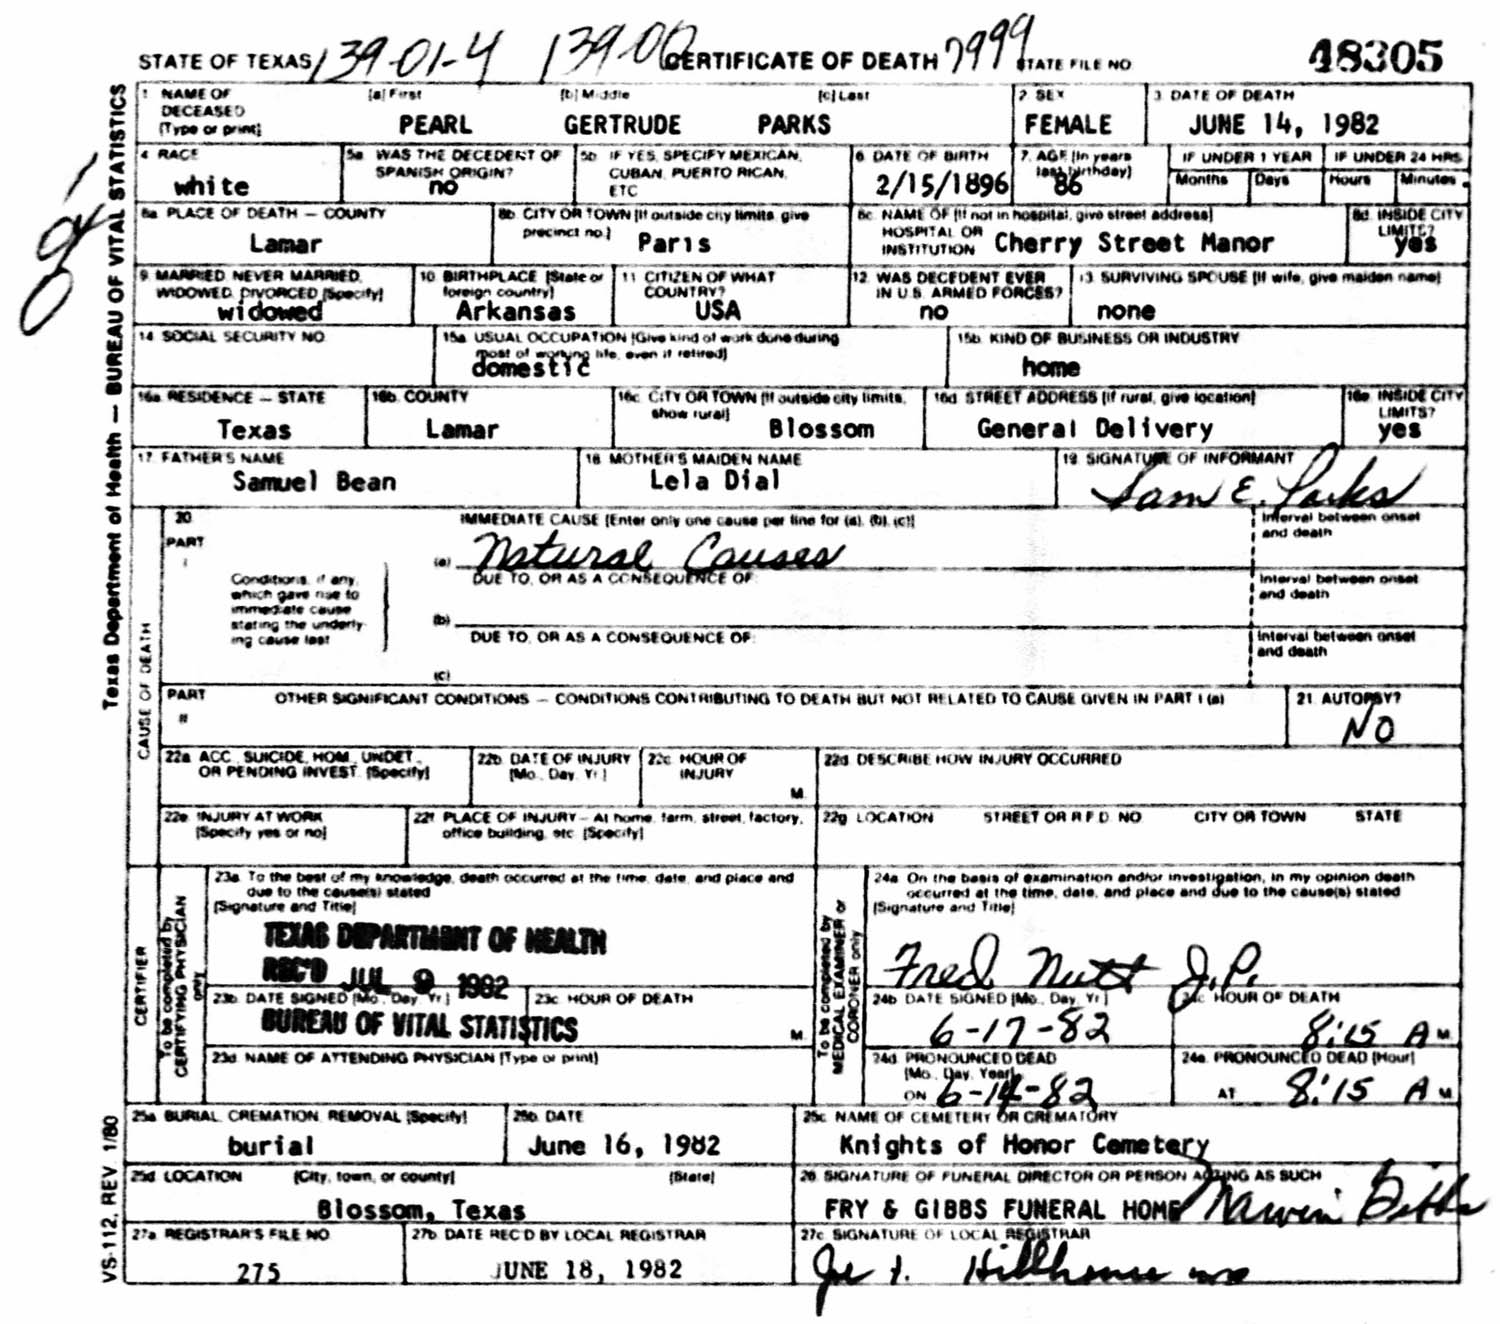 STATE OF TEXAS 139-01-4 139-00 CERTIFICATE OF DEATH 7999 STATE FILE NO 48305
Texas Department of Health — BUREAU OF VITAL STATISTICS
1 NAME OF DECEASED [Type or print] [a] First [b] Middle [c] Last 2. SEX 3. DATE OF DEATH
PEARL GERTRUDE PARKS FEMALE JUNE 14, 1982
4. RACE 5a. WAS THE DECEDENT OF SPANISH ORIGIN? 5b. IF YES, SPECIFY MEXICAN, CUBAN, PUERTO RICAN, ETC 6. DATE OF BIRTH 7. AGE [In years last birthday] IF UNDER 1 YEAR IF UNDER 24 HRS
Months Days Hours Minutes
white no 2/15/1896 86
8a. PLACE OF DEATH — COUNTY 8b. CITY OR TOWN [If outside city limits, give precinct no.] 8c. NAME OF [If not in hospital, give street address] HOSPITAL OR INSTITUTION 8d. INSIDE CITY LIMITS?
Lamar Paris Cherry Street Manor yes
9. MARRIED, NEVER MARRIED, WIDOWED, DIVORCED [Specify] 10. BIRTHPLACE [State or foreign country] 11. CITIZEN OF WHAT COUNTRY? 12. WAS DECEDENT EVER IN U.S. ARMED FORCES? 13. SURVIVING SPOUSE [If wife, give maiden name]
widowed Arkansas USA no none
14. SOCIAL SECURITY NO. 15a. USUAL OCCUPATION [Give kind of work done during most of working life, even if retired] 15b. KIND OF BUSINESS OR INDUSTRY
domestic home
16a. RESIDENCE — STATE 16b. COUNTY 16c. CITY OR TOWN [If outside city limits, show rural] 16d. STREET ADDRESS [If rural, give location] 16e. INSIDE CITY LIMITS?
Texas Lamar Blossom General Delivery yes
17. FATHER'S NAME 18. MOTHER'S MAIDEN NAME 19. SIGNATURE OF INFORMANT
Samuel Bean Lela Dial Sam E. Parks
CAUSE OF DEATH
20. PART I IMMEDIATE CAUSE [Enter only one cause per line for (a), (b), (c)] Interval between onset and death
(a) Natural Causes
Conditions, if any, which gave rise to immediate cause stating the underlying cause last
DUE TO, OR AS A CONSEQUENCE OF: Interval between onset and death
(b)
DUE TO, OR AS A CONSEQUENCE OF: Interval between onset and death
(c)
PART II OTHER SIGNIFICANT CONDITIONS — CONDITIONS CONTRIBUTING TO DEATH BUT NOT RELATED TO CAUSE GIVEN IN PART I (a) 21. AUTOPSY?
NO
22a. ACC., SUICIDE, HOM., UNDET., OR PENDING INVEST. [Specify] 22b. DATE OF INJURY [Mo., Day, Yr.] 22c. HOUR OF INJURY M. 22d. DESCRIBE HOW INJURY OCCURRED
22e. INJURY AT WORK [Specify yes or no] 22f. PLACE OF INJURY — At home, farm, street, factory, office building, etc. [Specify] 22g. LOCATION STREET OR R.F.D. NO. CITY OR TOWN STATE
CERTIFIER
To be completed by CERTIFYING PHYSICIAN only
23a. To the best of my knowledge, death occurred at the time, date, and place and due to the cause(s) stated
[Signature and Title]
TEXAS DEPARTMENT OF HEALTH
REC'D JUL 9 1982
BUREAU OF VITAL STATISTICS
23b. DATE SIGNED [Mo., Day, Yr.] 23c. HOUR OF DEATH M.
23d. NAME OF ATTENDING PHYSICIAN [Type or print]
To be completed by MEDICAL EXAMINER or CORONER only
24a. On the basis of examination and/or investigation, in my opinion death occurred at the time, date, and place and due to the cause(s) stated
[Signature and Title]
Fred Nutt J.P.
24b. DATE SIGNED [Mo., Day, Yr.] 24c. HOUR OF DEATH
6-17-82 8:15 A M.
24d. PRONOUNCED DEAD [Mo., Day, Year] 24e. PRONOUNCED DEAD [Hour]
ON 6-14-82 AT 8:15 A M.
25a. BURIAL, CREMATION, REMOVAL [Specify] 25b. DATE 25c. NAME OF CEMETERY OR CREMATORY
burial June 16, 1982 Knights of Honor Cemetery
25d. LOCATION [City, town, or county] [State] 26. SIGNATURE OF FUNERAL DIRECTOR OR PERSON ACTING AS SUCH
Blossom, Texas FRY & GIBBS FUNERAL HOME Marvin Gibbs
27a. REGISTRAR'S FILE NO. 27b. DATE REC'D BY LOCAL REGISTRAR 27c. SIGNATURE OF LOCAL REGISTRAR
275 JUNE 18, 1982 Joe Hillhouse
VS-112, REV. 1/80